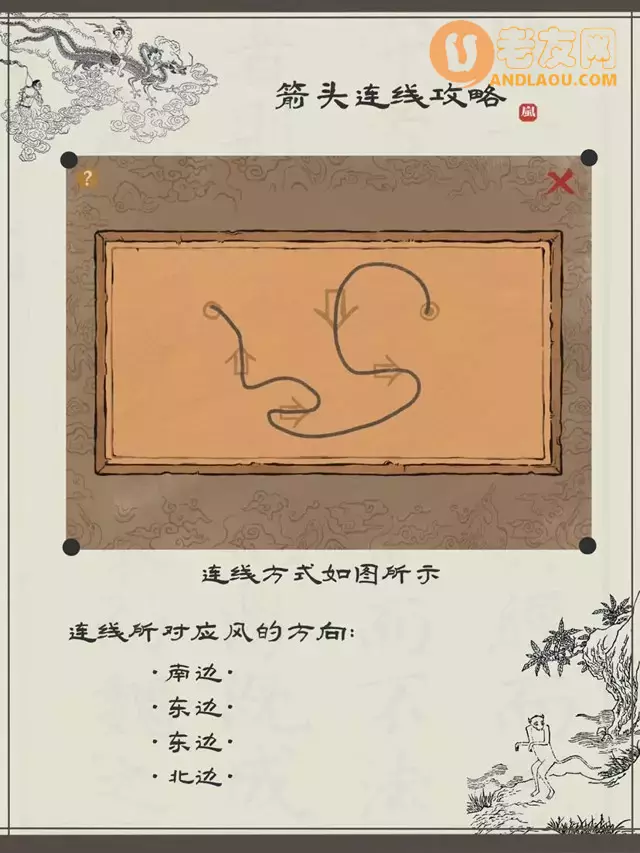 老友网
ANDLAOU.COM
箭头连线攻略
?
连线方式如图所示
连线所对应风的方向:
·南边·
·东边·
·东边·
·北边·